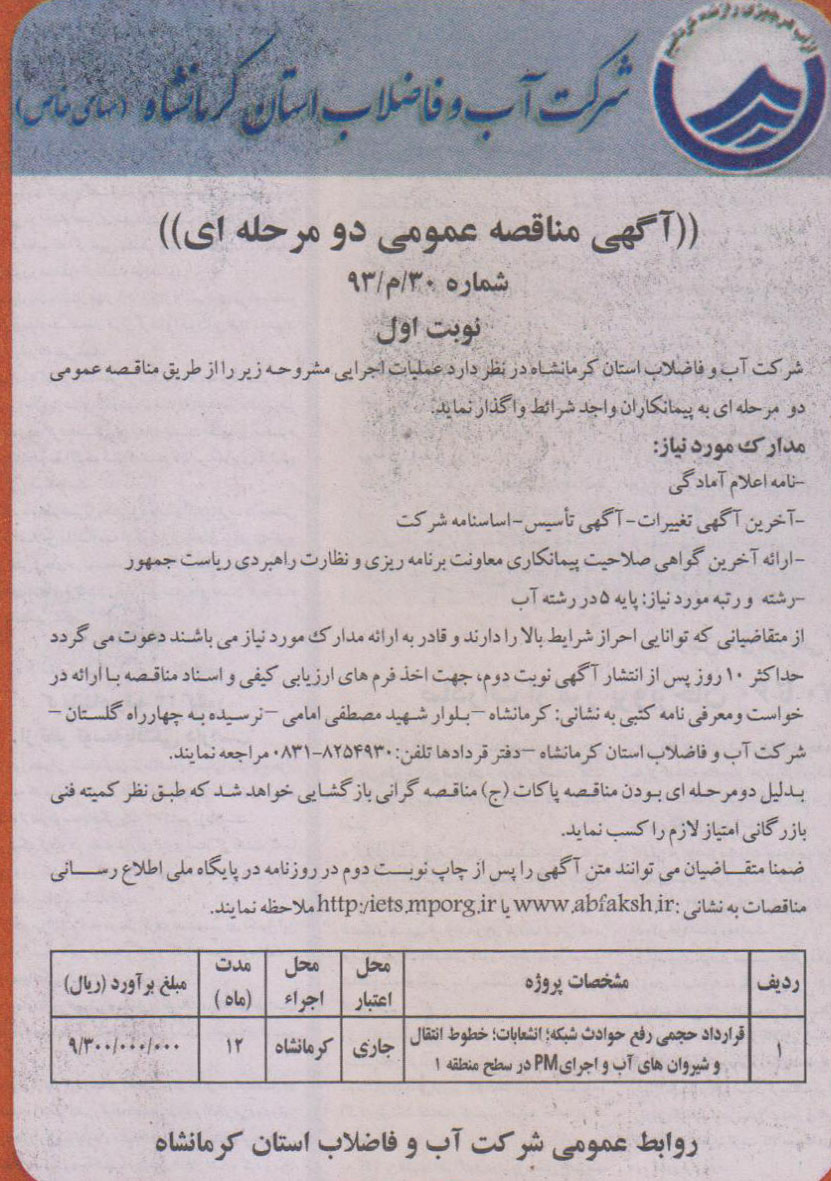 شرکت آب و فاضلاب استان کرمانشاه (سهامی خاص)
((آگهی مناقصه عمومی دو مرحله ای))
شماره ۳۰/م/۹۳
نوبت اول
شرکت آب و فاضلاب استان کرمانشاه در نظر دارد عملیات اجرایی مشروحه زیر را از طریق مناقصه عمومی
دو مرحله ای به پیمانکاران واجد شرائط واگذار نماید.
مدارک مورد نیاز:
-نامه اعلام آمادگی
-آخرین آگهی تغییرات-آگهی تأسیس-اساسنامه شرکت
-ارائه آخرین گواهی صلاحیت پیمانکاری معاونت برنامه ریزی و نظارت راهبردی ریاست جمهور
-رشته و رتبه مورد نیاز: پایه ۵ در رشته آب
از متقاضیانی که توانایی احراز شرایط بالا را دارند و قادر به ارائه مدارک مورد نیاز می باشند دعوت می گردد
حداکثر ۱۰ روز پس از انتشار آگهی نوبت دوم، جهت اخذ فرم های ارزیابی کیفی و اسناد مناقصه با ارائه در
خواست ومعرفی نامه کتبی به نشانی: کرمانشاه -بلوار شهید مصطفی امامی -نرسیده به چهارراه گلستان -
شرکت آب و فاضلاب استان کرمانشاه -دفتر قردادها تلفن: ۸۲۵۴۹۳۰-۰۸۳۱ مراجعه نمایند.
بدلیل دومرحله ای بودن مناقصه پاکات (ج) مناقصه گرانی بازگشایی خواهد شد که طبق نظر کمیته فنی
بازرگانی امتیاز لازم را کسب نماید.
ضمنا متقاضیان می توانند متن آگهی را پس از چاپ نوبت دوم در روزنامه در پایگاه ملی اطلاع رسانی
مناقصات به نشانی: www.abfaksh.ir یا http:/iets.mporg.ir ملاحظه نمایند.
ردیف مشخصات پروژه محل اعتبار محل اجراء مدت (ماه) مبلغ برآورد (ریال)
۱ قرارداد حجمی رفع حوادث شبکه؛ انشعابات؛ خطوط انتقال و شیروان های آب و اجرای PM در سطح منطقه ۱ جاری کرمانشاه ۱۲ ۹/۳۰۰/۰۰۰/۰۰۰
روابط عمومی شرکت آب و فاضلاب استان کرمانشاه